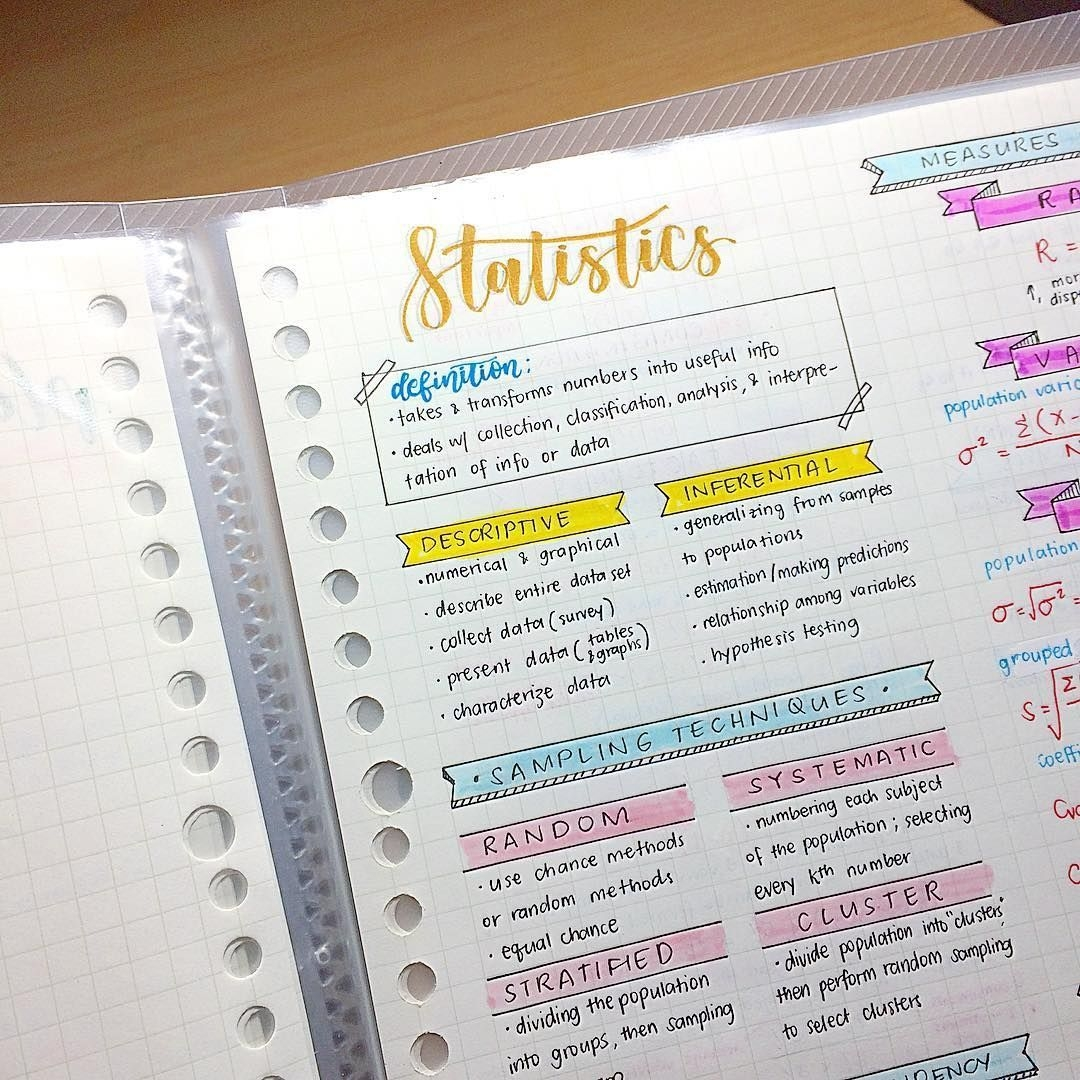 Statistics
definition:
• takes & transforms numbers into useful info
• deals w/ collection, classification, analysis, & interpre-
tation of info or data
DESCRIPTIVE
• numerical & graphical
• describe entire data set
• collect data (survey)
• present data (tables
& graphs)
• characterize data
INFERENTIAL
• generalizing from samples
to populations
• estimation/making predictions
• relationship among variables
• hypothesis testing
• SAMPLING TECHNIQUES •
RANDOM
• use chance methods
or random methods
• equal chance
SYSTEMATIC
• numbering each subject
of the population; selecting
every kth number
STRATIFIED
• dividing the population
into groups, then sampling
CLUSTER
• divide population into "clusters",
then perform random sampling
to select clusters
MEASURES
R =
population
σ² = Σ(X-
N
population
σ = √σ² =
grouped
S = √Σ